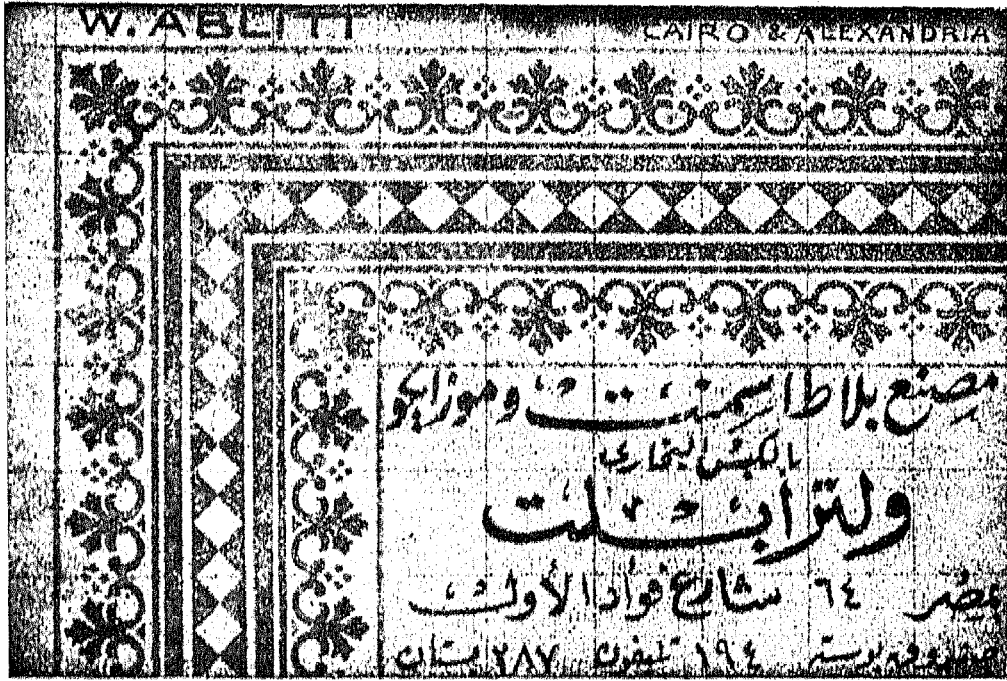 W. ABLITT
CAIRO & ALEXANDRIA
مصنع بلاط اسمنت وموزايكو
بالكبس البخاري
ولتر ابلت
مصر ٦٤ شارع فؤاد الأول
صندوق بوستة ١٩٤ تليفون ٢٨٧ بستان